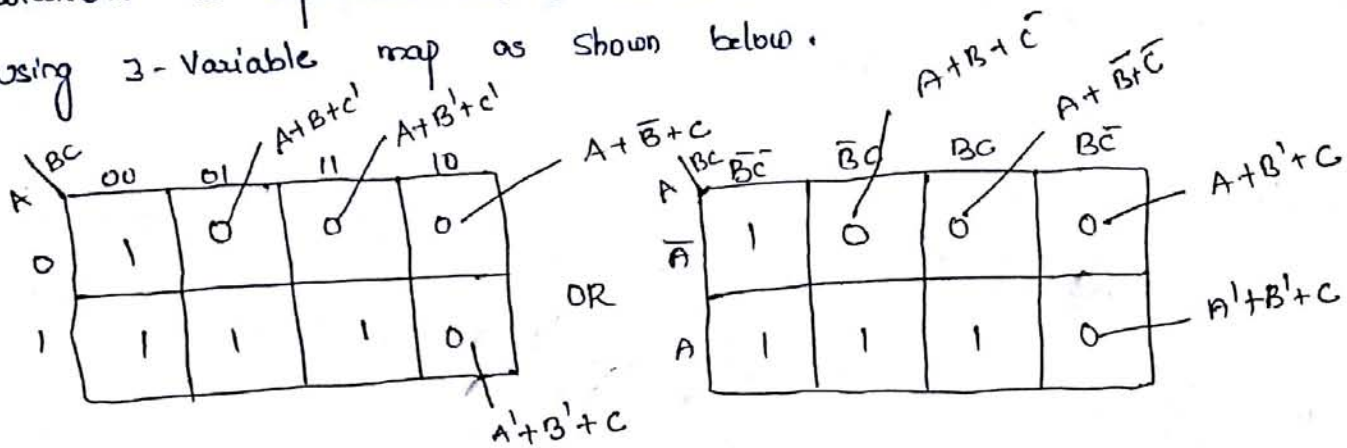 using 3-Variable map as shown below.
A+B+C' A+B'+C' A+B̅+C
A BC 00 01 11 10
0 1 0 0 0
1 1 1 1 0
A'+B'+C
OR
A+B+C̅ A+B̅+C̅
A BC B̅C̅ B̅C BC BC̅
A̅ 1 0 0 0 A+B'+C
A 1 1 1 0 A'+B'+C